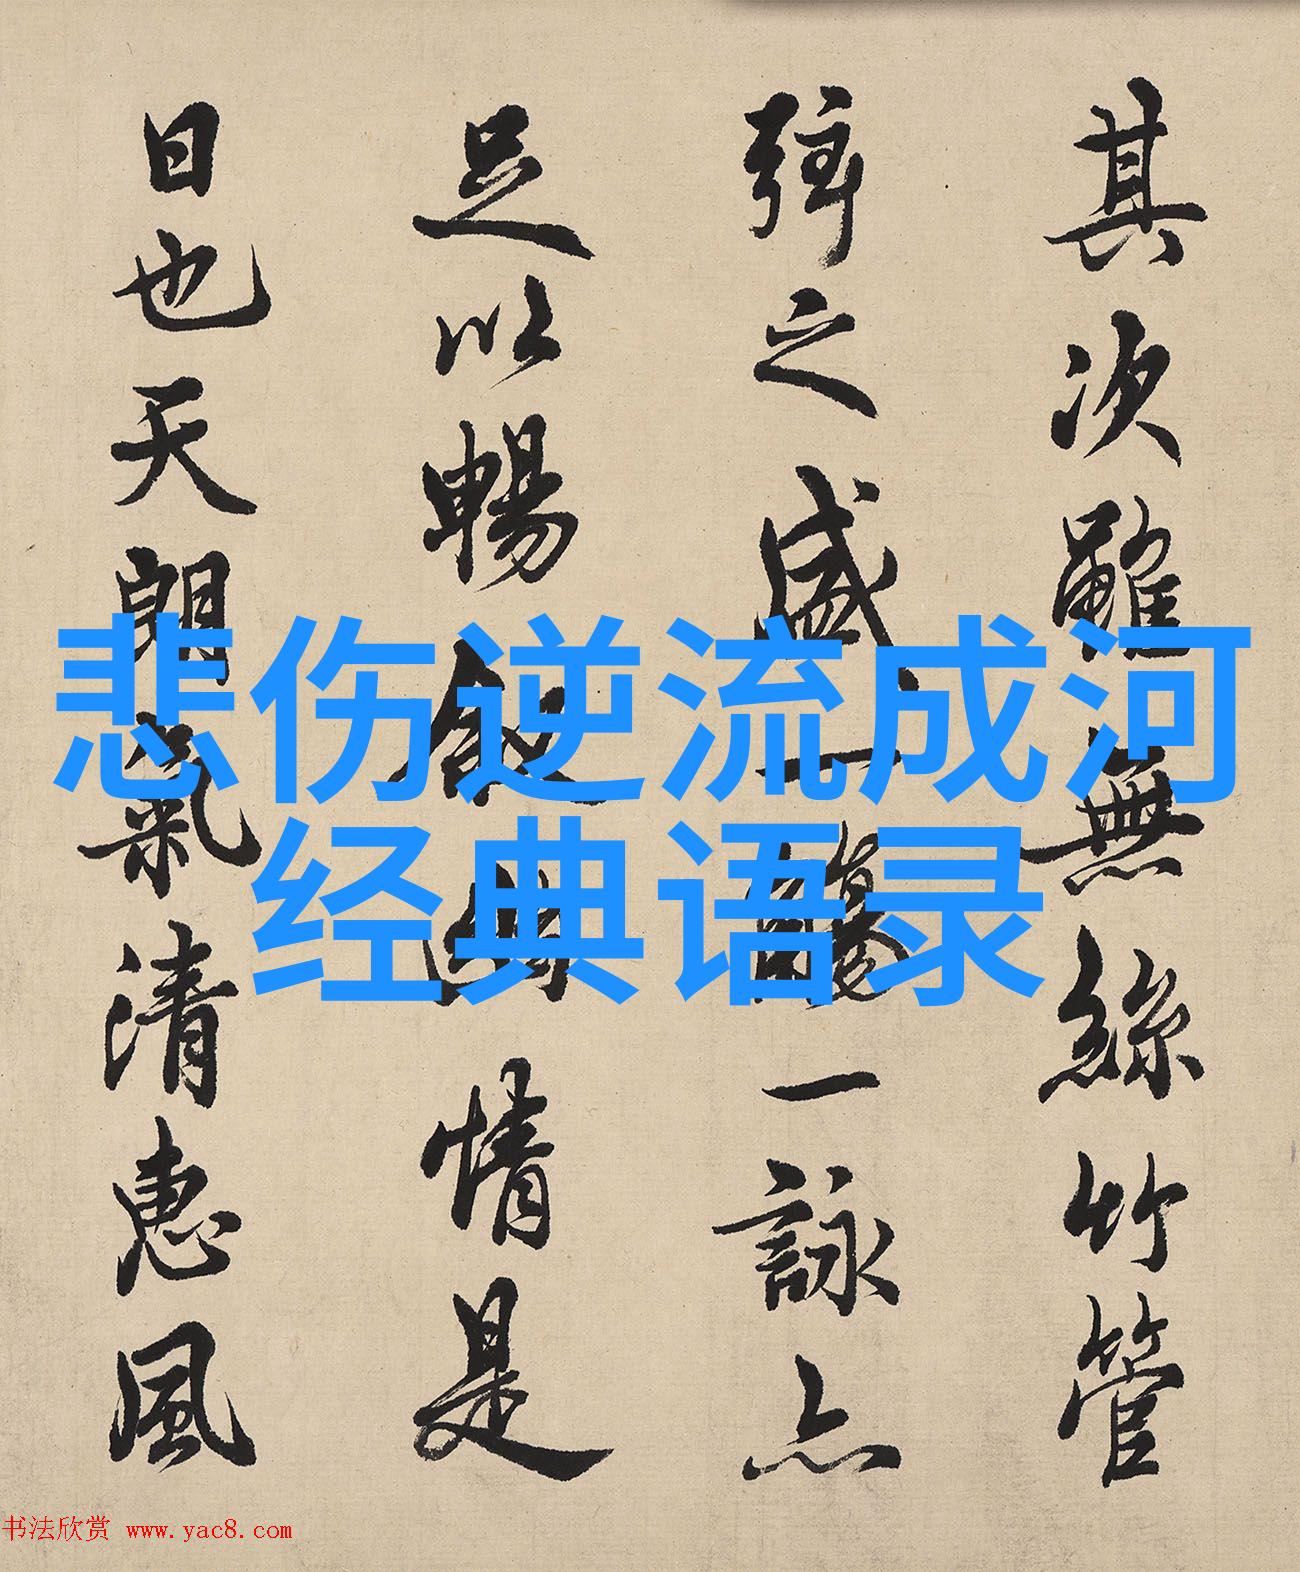 其次雖無絲竹管
弦之盛一觴一詠亦
足以暢叙幽情是
日也天朗氣清惠風
悲伤逆流成河
经典语录
书法欣赏 www.yac8.com